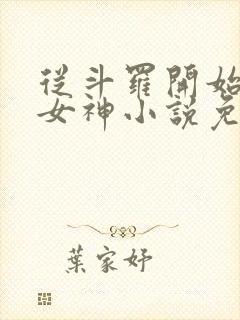 從斗羅開始
女神小說免
葉家妤